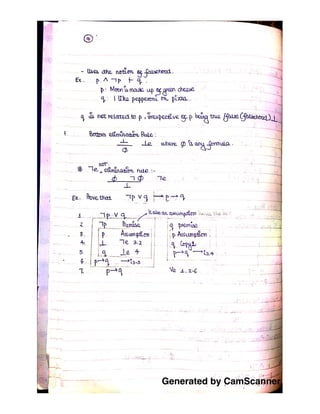 ④
- Uses the notion of falsehood.
Ex. p ∧ ¬p ⊢ q.
p: Moon is made up of green cheese
q: I like pepperoni on pizza.
q is not related to p. Irrespective of p being true (falsehood) ⊥.
Bottom elimination Rule:
⊥
⊥e where Ø is any formula.
Ø
¬e, NOT elimination rule :-
Ø ¬Ø ¬e
⊥
Ex. Prove that ¬p ∨ q ⊢ p → q
1. ¬p ∨ q
2. ¬p Premise q premise
3. p Assumption p Assumption
4. ⊥ ¬e 3,2 q Copy 2
5. q ⊥e 4 p→q →i 3,4
6. p→q →i 3-5
7. p→q Ve 1, 2-6
Generated by CamScanner